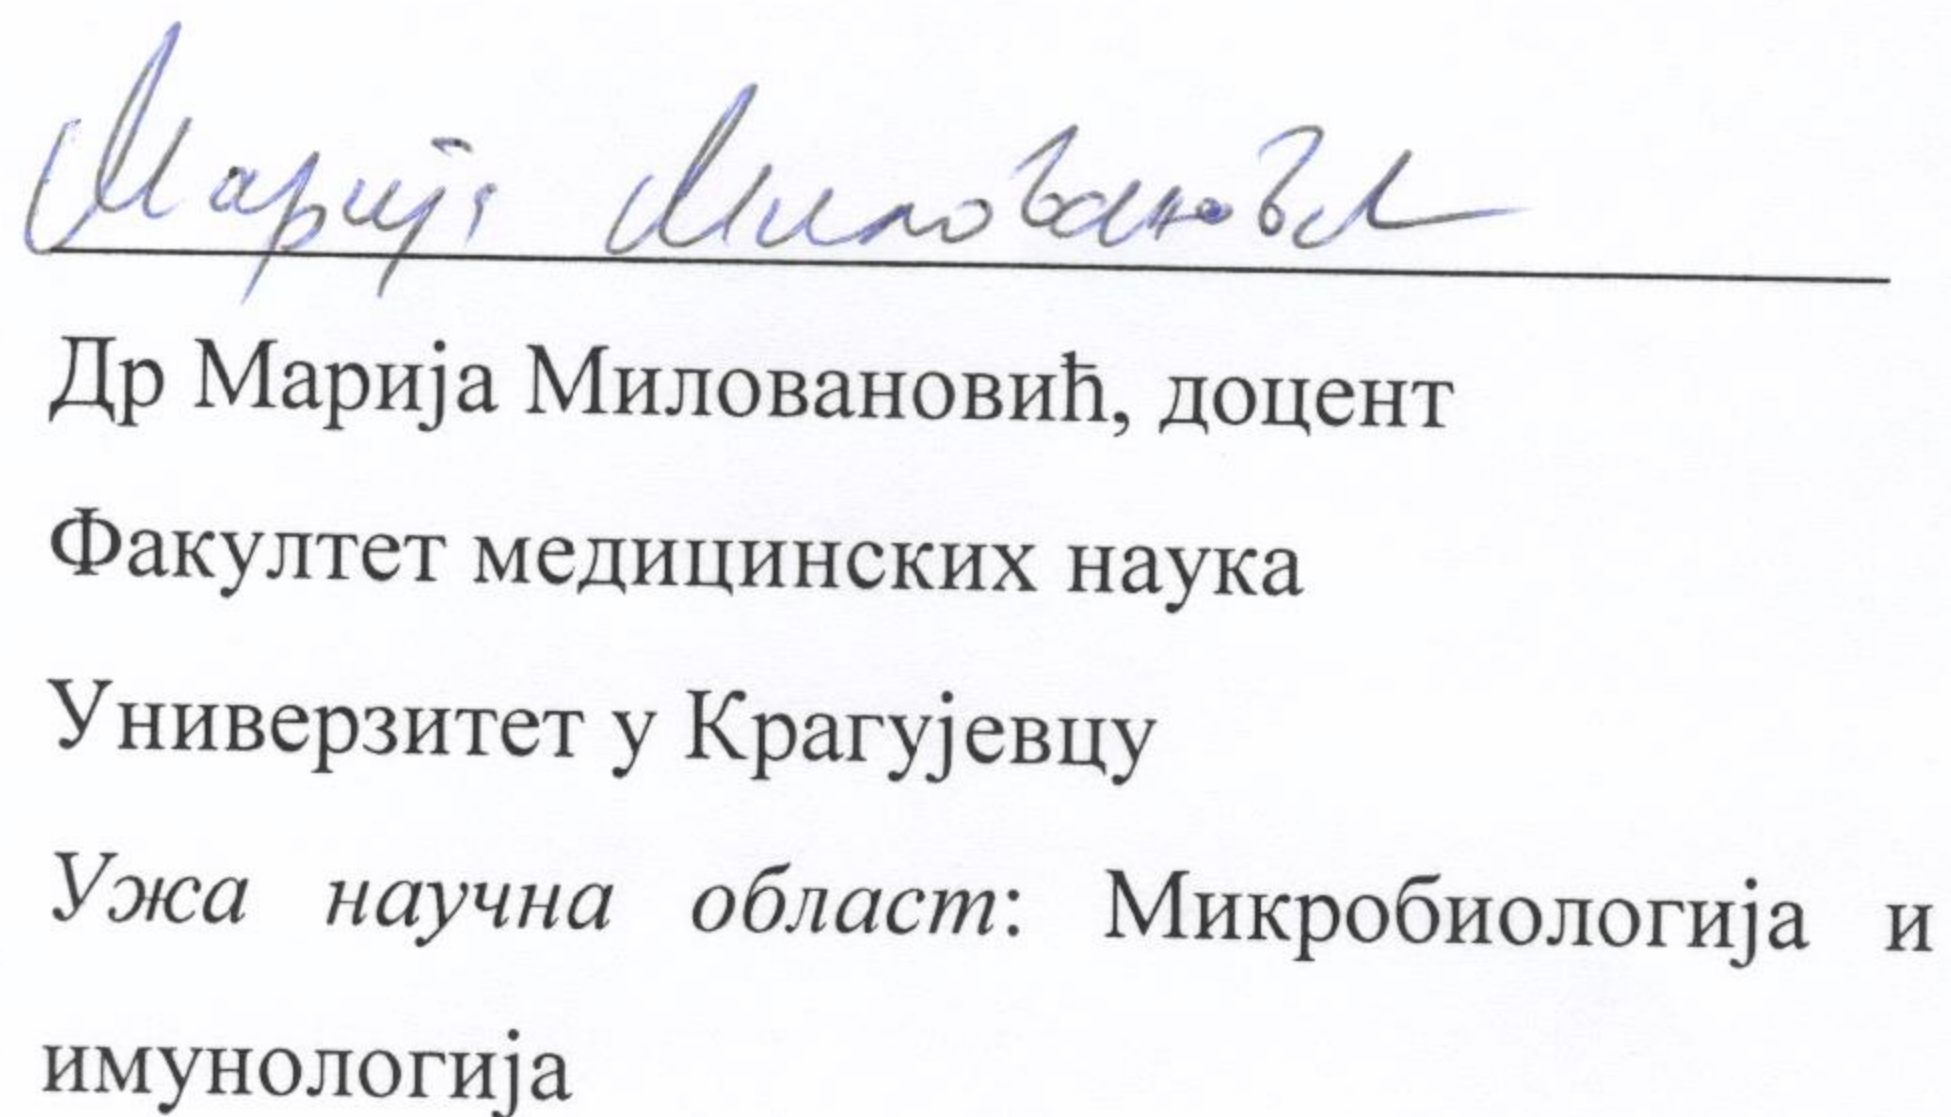 Марија Миловановић
Др Марија Миловановић, доцент
Факултет медицинских наука
Универзитет у Крагујевцу
Ужа научна област: Микробиологија и
имунологија